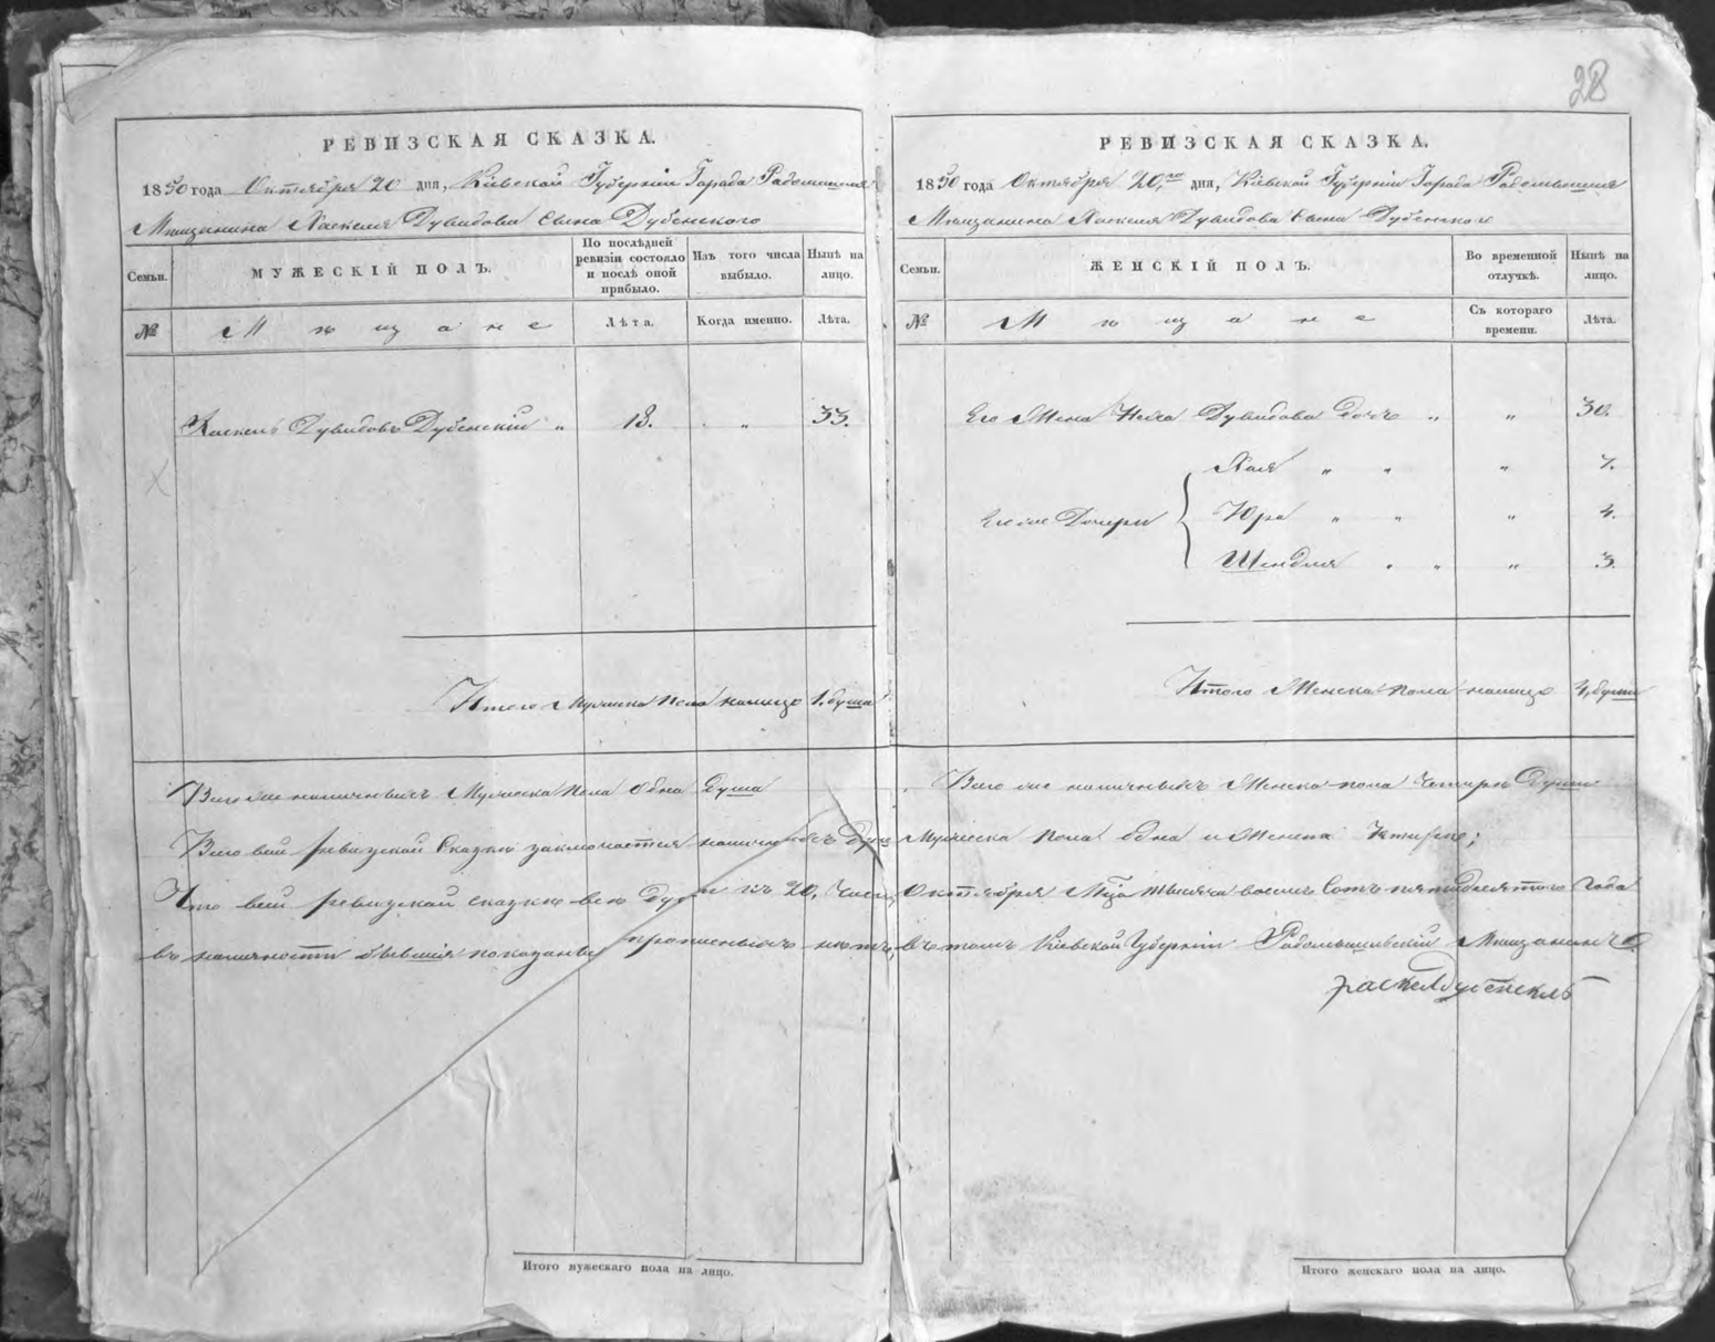 28
РЕВИЗСКАЯ СКАЗКА.
1850 года Октября 20 дня, Кіевской Губерніи Города Радомысля
Мѣщанина Хаскеля Дувидова Сына Дубенского
Семьи.
МУЖЕСКІЙ ПОЛЪ.
По послѣдней ревизіи состояло и послѣ оной прибыло.
Изъ того числа выбыло.
Нынѣ на лицо.
№
Мѣщане
Лѣта.
Когда именно.
Лѣта.
Хаскель Дувидовъ Дубенскій " 18. " 33.
Итого Мужеска Пола налицо 1. душа
Всего же наличныхъ Мужеска Пола Одна Душа
РЕВИЗСКАЯ СКАЗКА.
1850 года Октября 20,го дня, Кіевской Губерніи Города Радомысля
Мѣщанина Хаскеля Дувидова Сына Дубенского
Семьи.
ЖЕНСКІЙ ПОЛЪ.
Во временной отлучкѣ.
Нынѣ на лицо.
№
Мѣщане
Съ котораго времени.
Лѣта.
Его Жена Дувидова Дочь " " 30.
Хая " " " 7.
Его же Дочери
Юра " " " 4.
Шендля " " " 3.
Итого Женска пола налицо 4, души
Всего же наличныхъ Женска пола Четыре Души
Всего въ сей ревизской Сказкѣ заключается наличныхъ Душъ Мужеска пола одна и Женска Четыре;
Что въ сей ревизской сказкѣ все души къ 20, Числу Октября Мца тысяча восемь Сотъ пятидесятого Года
въ наличности бывшія показаны прописныхъ нѣтъ, въ томъ Кіевской Губерніи Радомысльскій Мѣщанинъ
хаскел дубенскій
Итого мужескаго пола на лицо.
Итого женскаго пола на лицо.